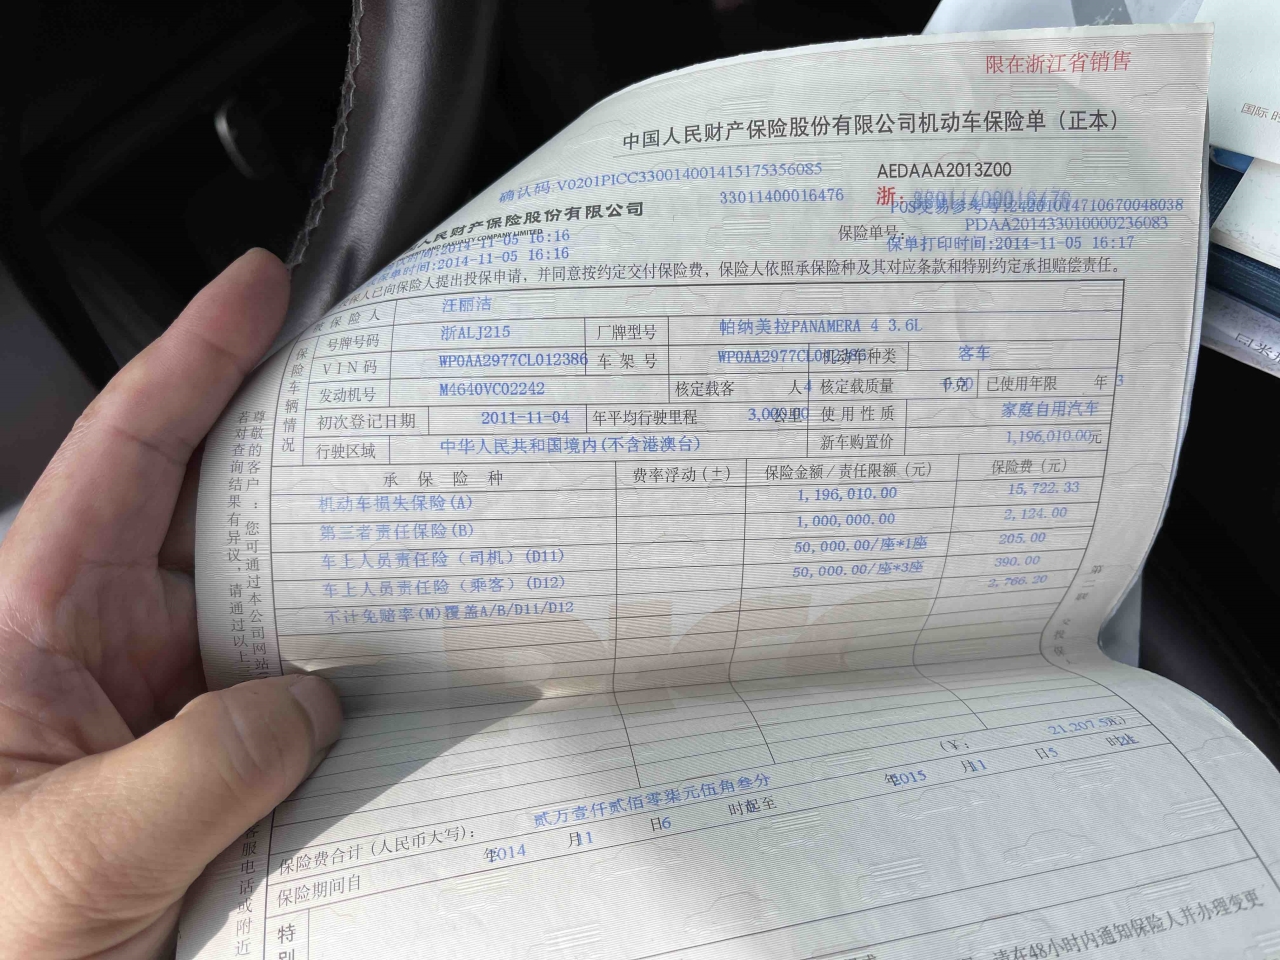 限在浙江省销售
中国人民财产保险股份有限公司机动车保险单（正本）
确认码:V0201PICC330014001415175356085
AEDAAA2013Z00
33011400016476
浙:
人民财产保险股份有限公司
POS交易参考号:
保险单号:
PDAA201433010000236083
2014-11-05 16:16
保单打印时间:2014-11-05 16:17
单时间:2014-11-05 16:16
保人已向保险人提出投保申请，并同意按约定交付保险费，保险人依照承保险种及其对应条款和特别约定承担赔偿责任。
保险人 汪丽洁
保险车辆情况
号牌号码 浙ALJ215 厂牌型号 帕纳美拉PANAMERA 4 3.6L
VIN码 WP0AA2977CL012386 车架号 WP0AA2977CL012386 机动车种类 客车
发动机号 M4640VC02242 核定载客 人4 核定载质量 千克 已使用年限 年3
初次登记日期 2011-11-04 年平均行驶里程 3,000.00公里 使用性质 家庭自用汽车
行驶区域 中华人民共和国境内(不含港澳台) 新车购置价 1,196,010.00元
承保险种 费率浮动（±） 保险金额/责任限额（元） 保险费（元）
机动车损失保险(A) 1,196,010.00 15,722.33
第三者责任保险(B) 1,000,000.00 2,124.00
车上人员责任险（司机）(D11) 50,000.00/座*1座 205.00
车上人员责任险（乘客）(D12) 50,000.00/座*3座 390.00
不计免赔率(M)覆盖A/B/D11/D12 2,766.20
保险费合计（人民币大写）： 贰万壹仟贰佰零柒元伍角叁分 （￥： 21,207.53元）
保险期间自 2014年 11月 6日 时起至 2015年 11月 5日 24时止
特别
请在48小时内通知保险人并办理变更
尊敬的客户：您可通过本公司网站
若对查询结果有异议，请通过以上三
客服电话或附近
第二联
国际